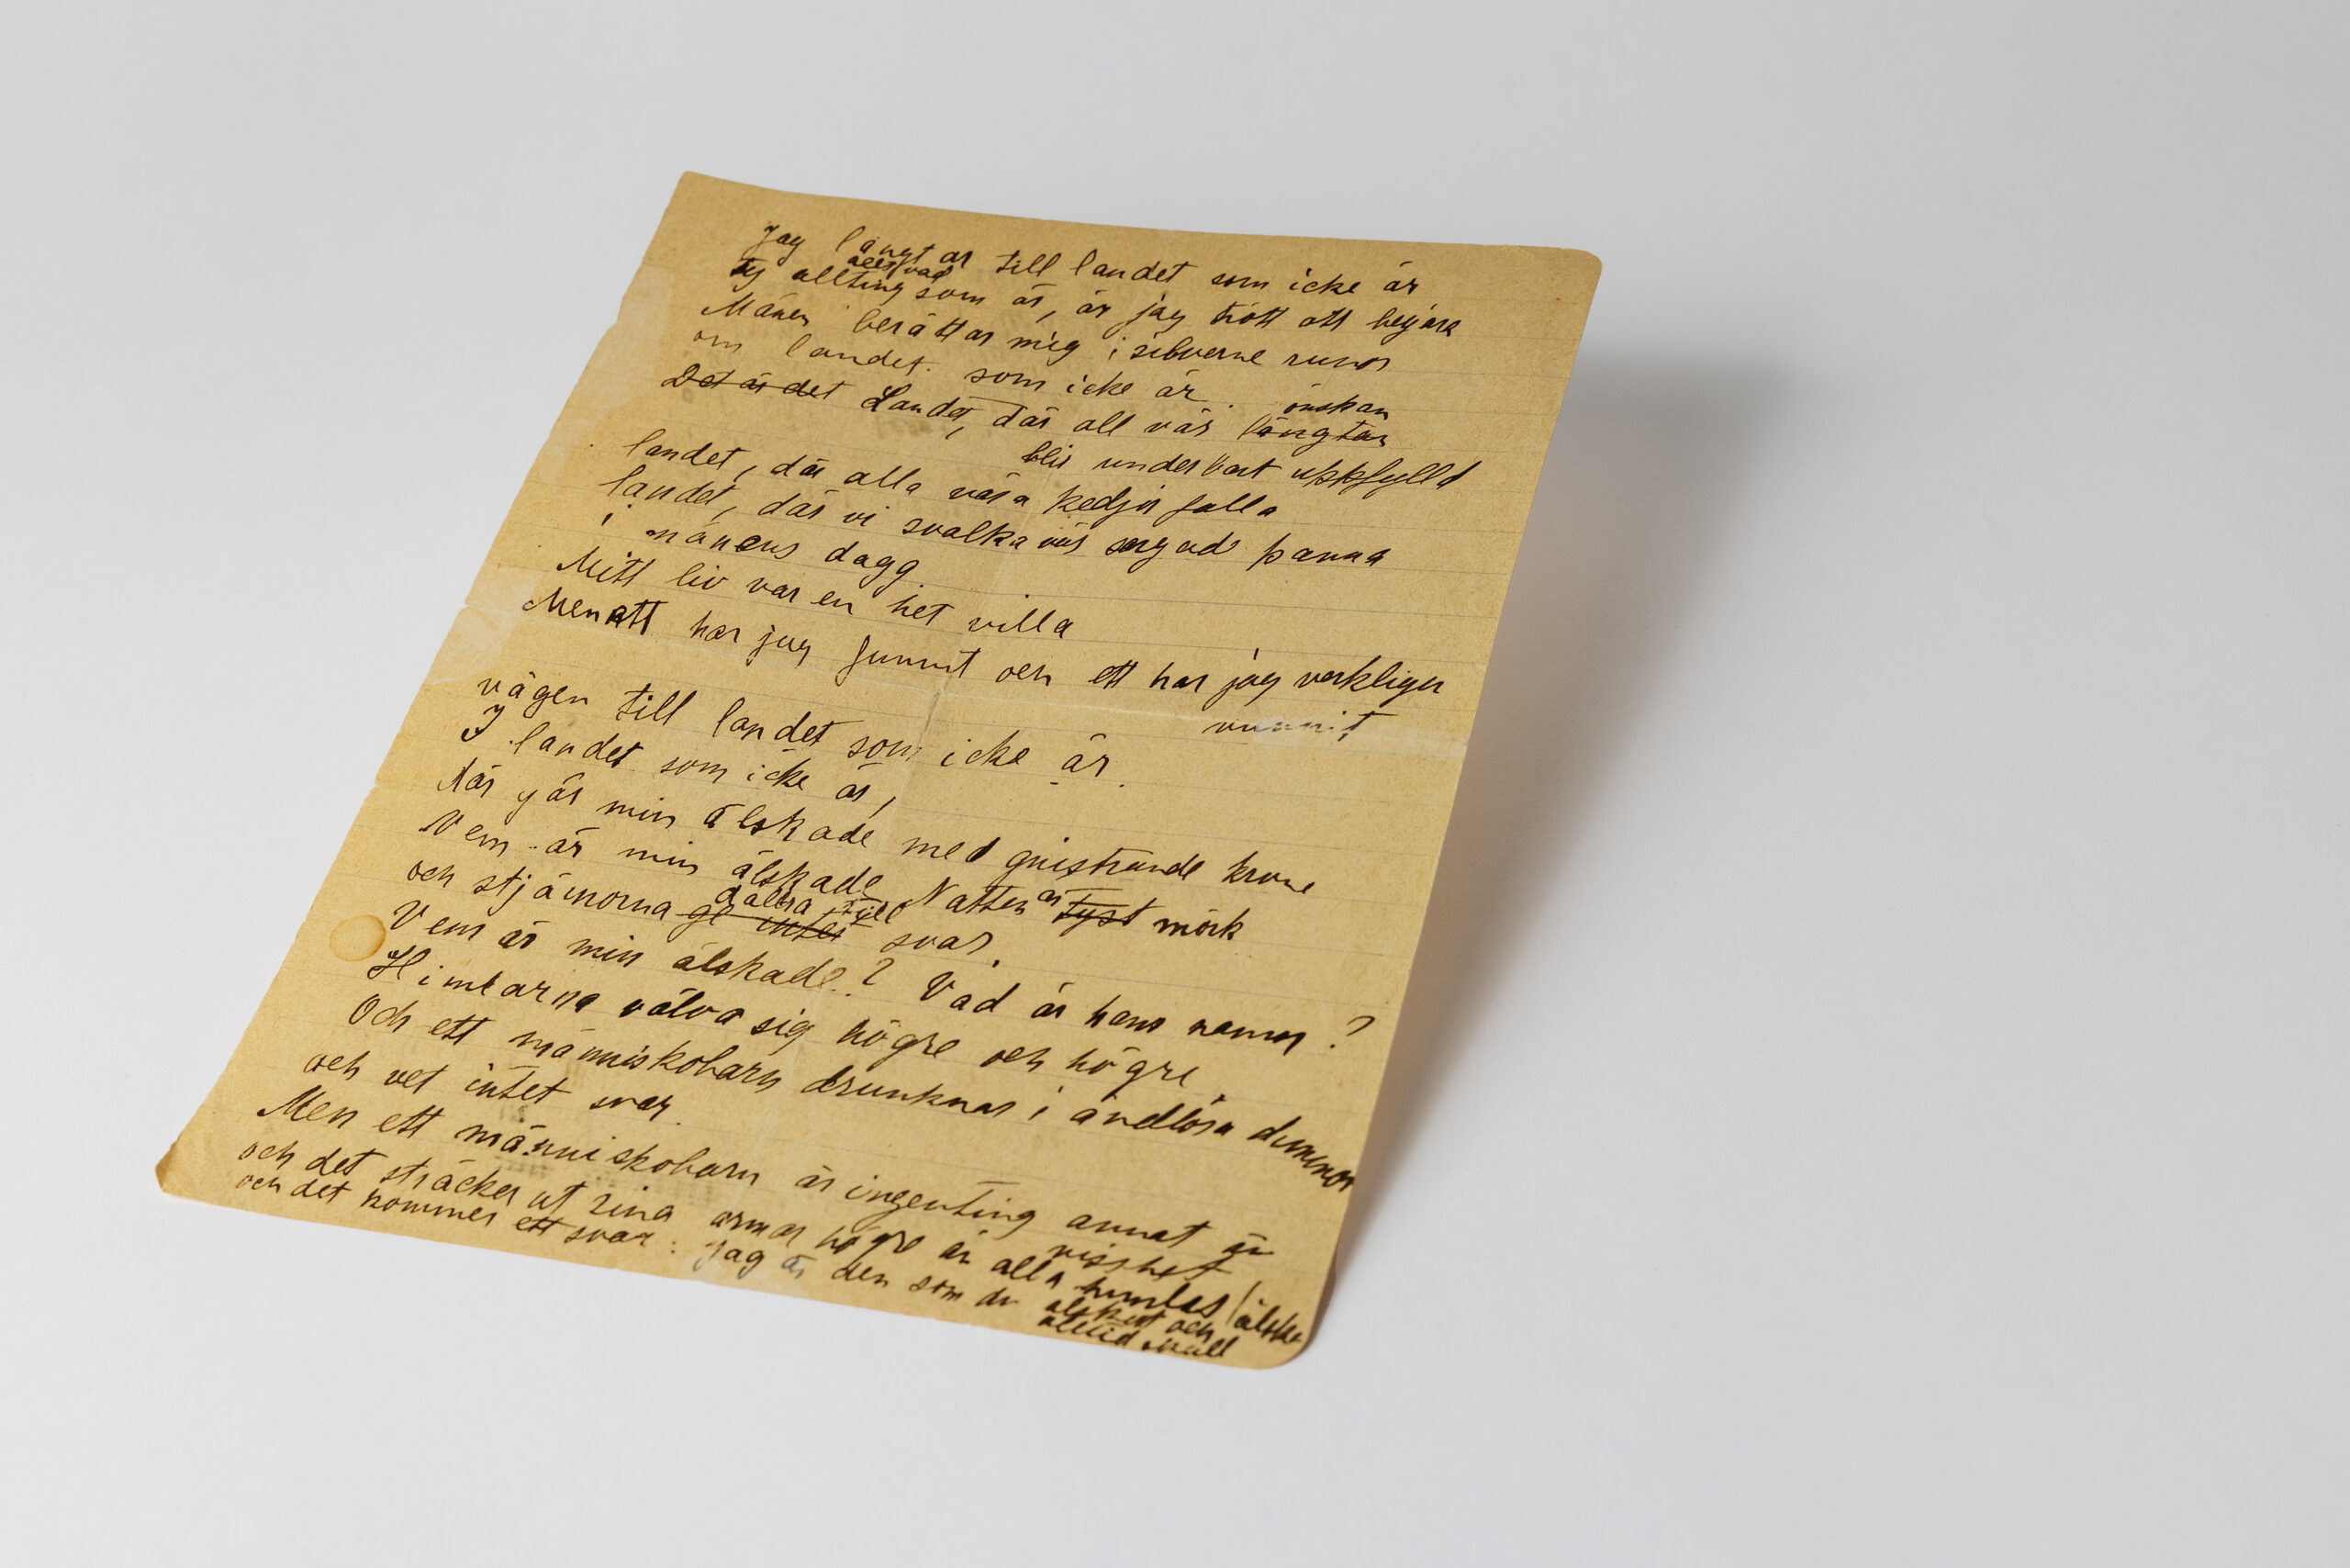 Jag längtar till landet som icke är
ty allting alls vad som är, är jag trött att begära
Månen berättar mig i silverne runor
om landet. som icke är.
Det är det Landet, där all vår längtan önskan
blir underbart uppfylld
landet, där alla våra kedjor falla
landet, där vi svalka vår sargade panna
i månens dagg.
Mitt liv var en het villa
Men ett har jag funnit och ett har jag verkligen
vunnit,
vägen till landet som icke är.
I landet som icke är,
där går min älskade med gnistrande krona
Vem är min älskade Natten är tyst mörk
och stjärnorna ge intet dallra till svar.
Vem är min älskade? Vad är hans namn?
Himlarna välva sig högre och högre
Och ett människobarn drunknar i ändlösa dimmor
och vet intet svar.
Men ett människobarn är ingenting annat än
visshet
och det sträcker ut sina armar högre än alla himlar
och det kommer ett svar: Jag är den som du älskar
älskat och
alltid skall